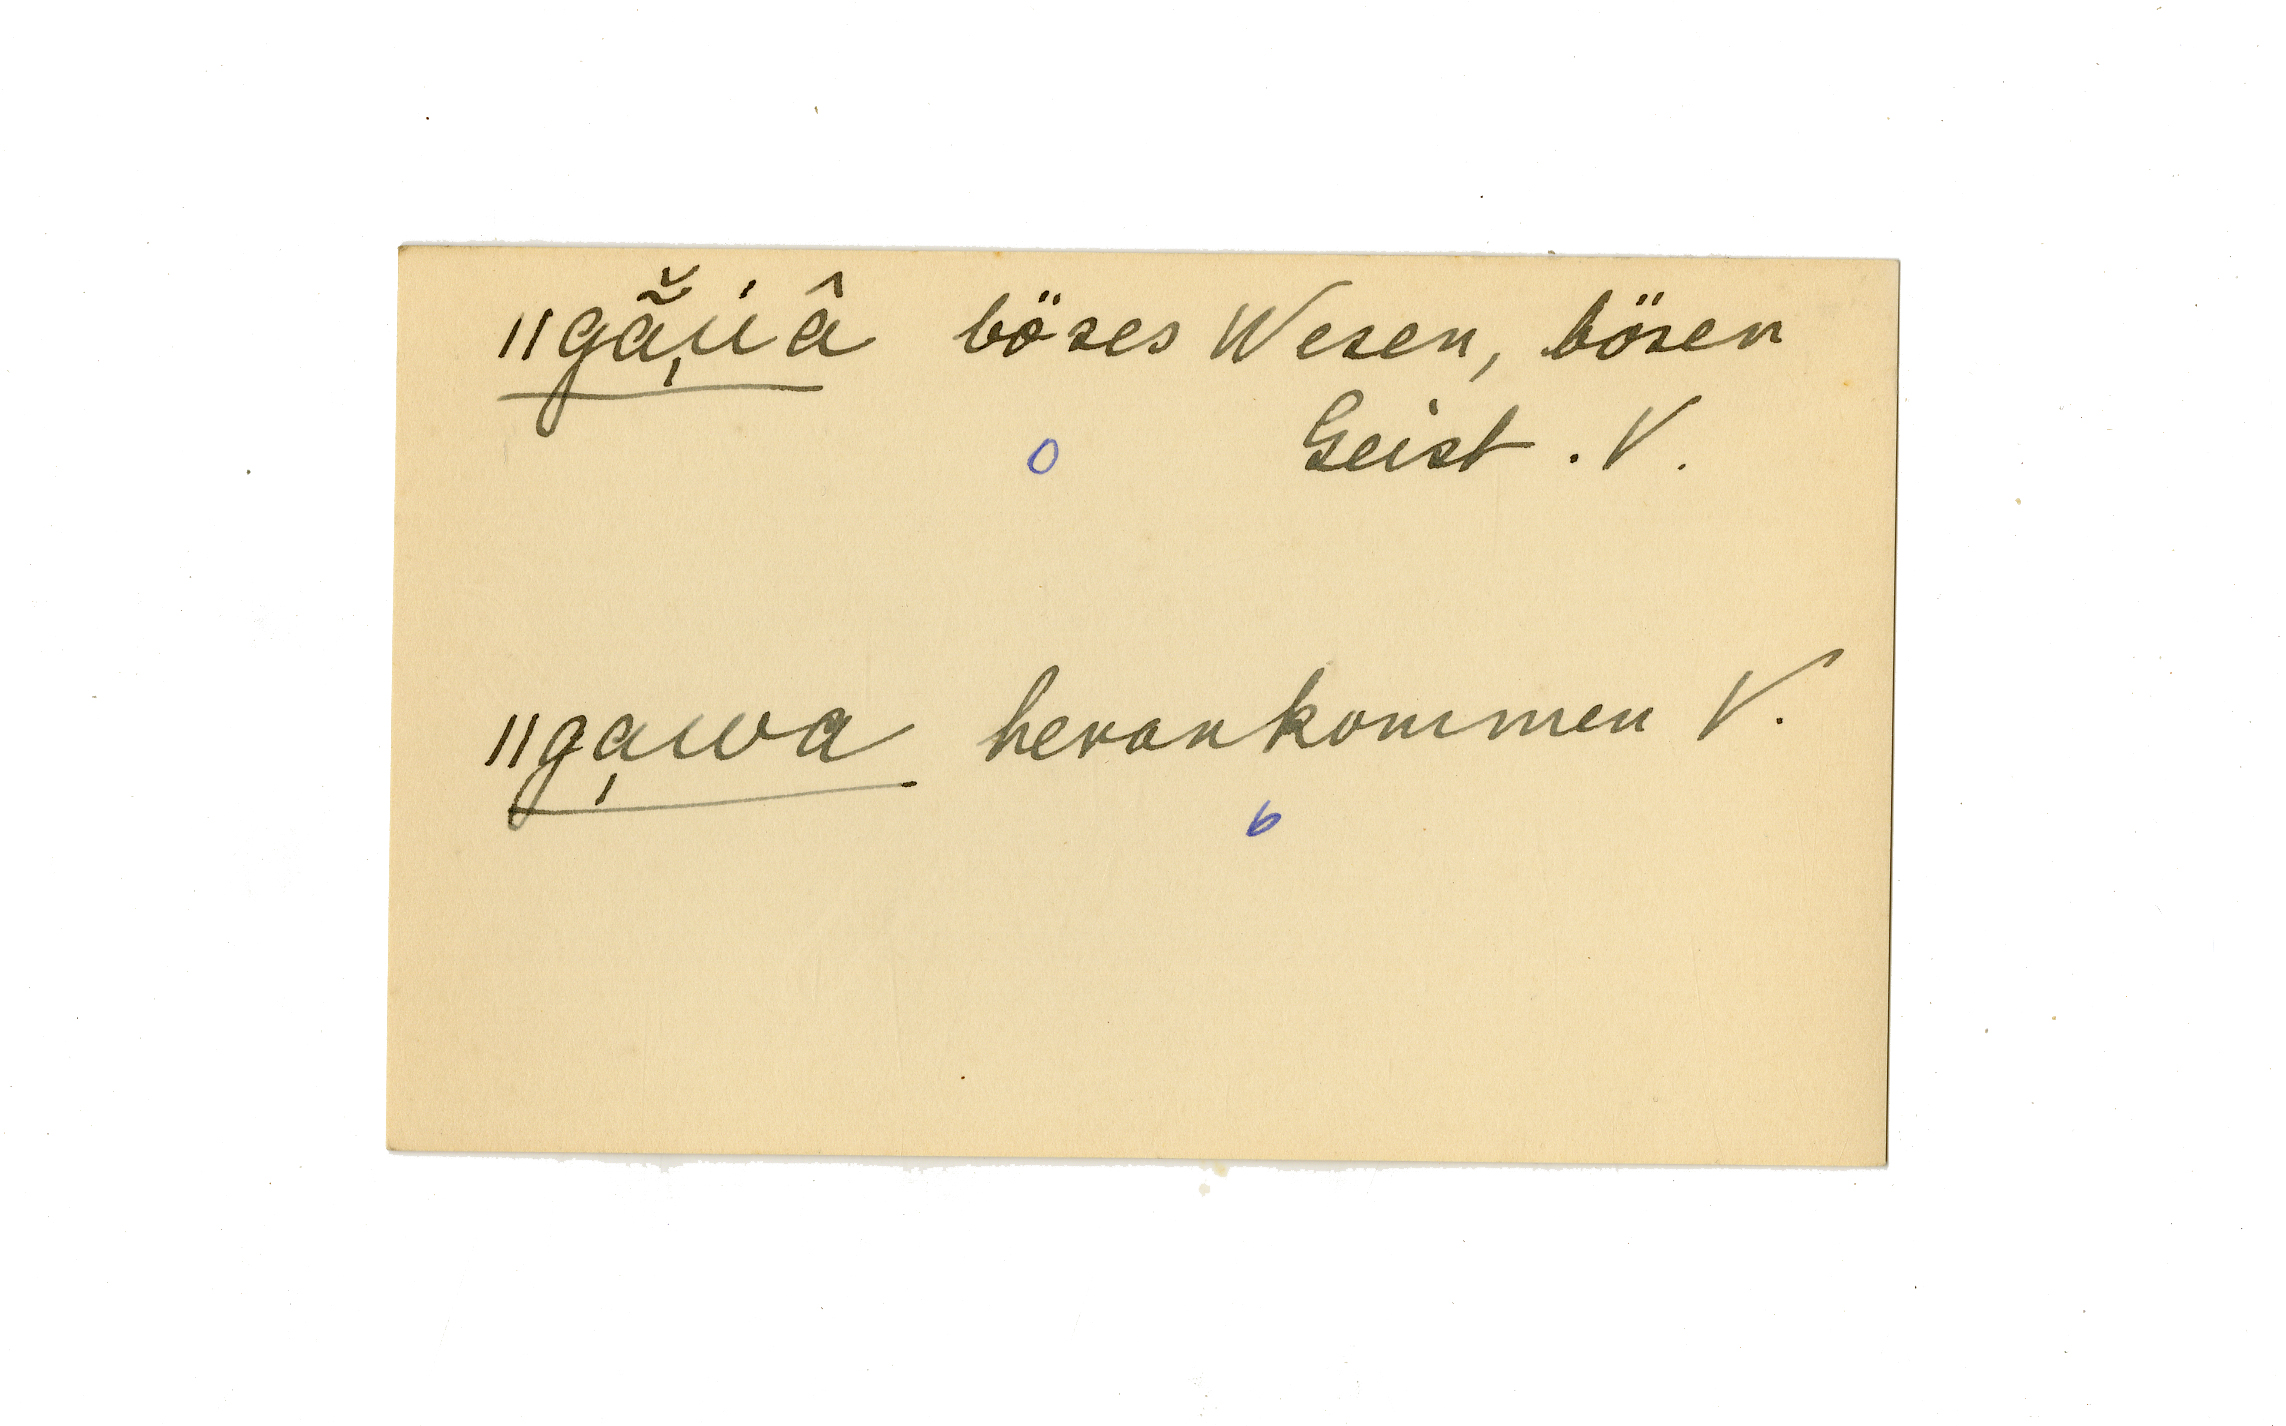 ǁgã̦̆uâ böses Wesen, bösen
Geist. V.
o
ǁga̦uwa herankommen V.
b